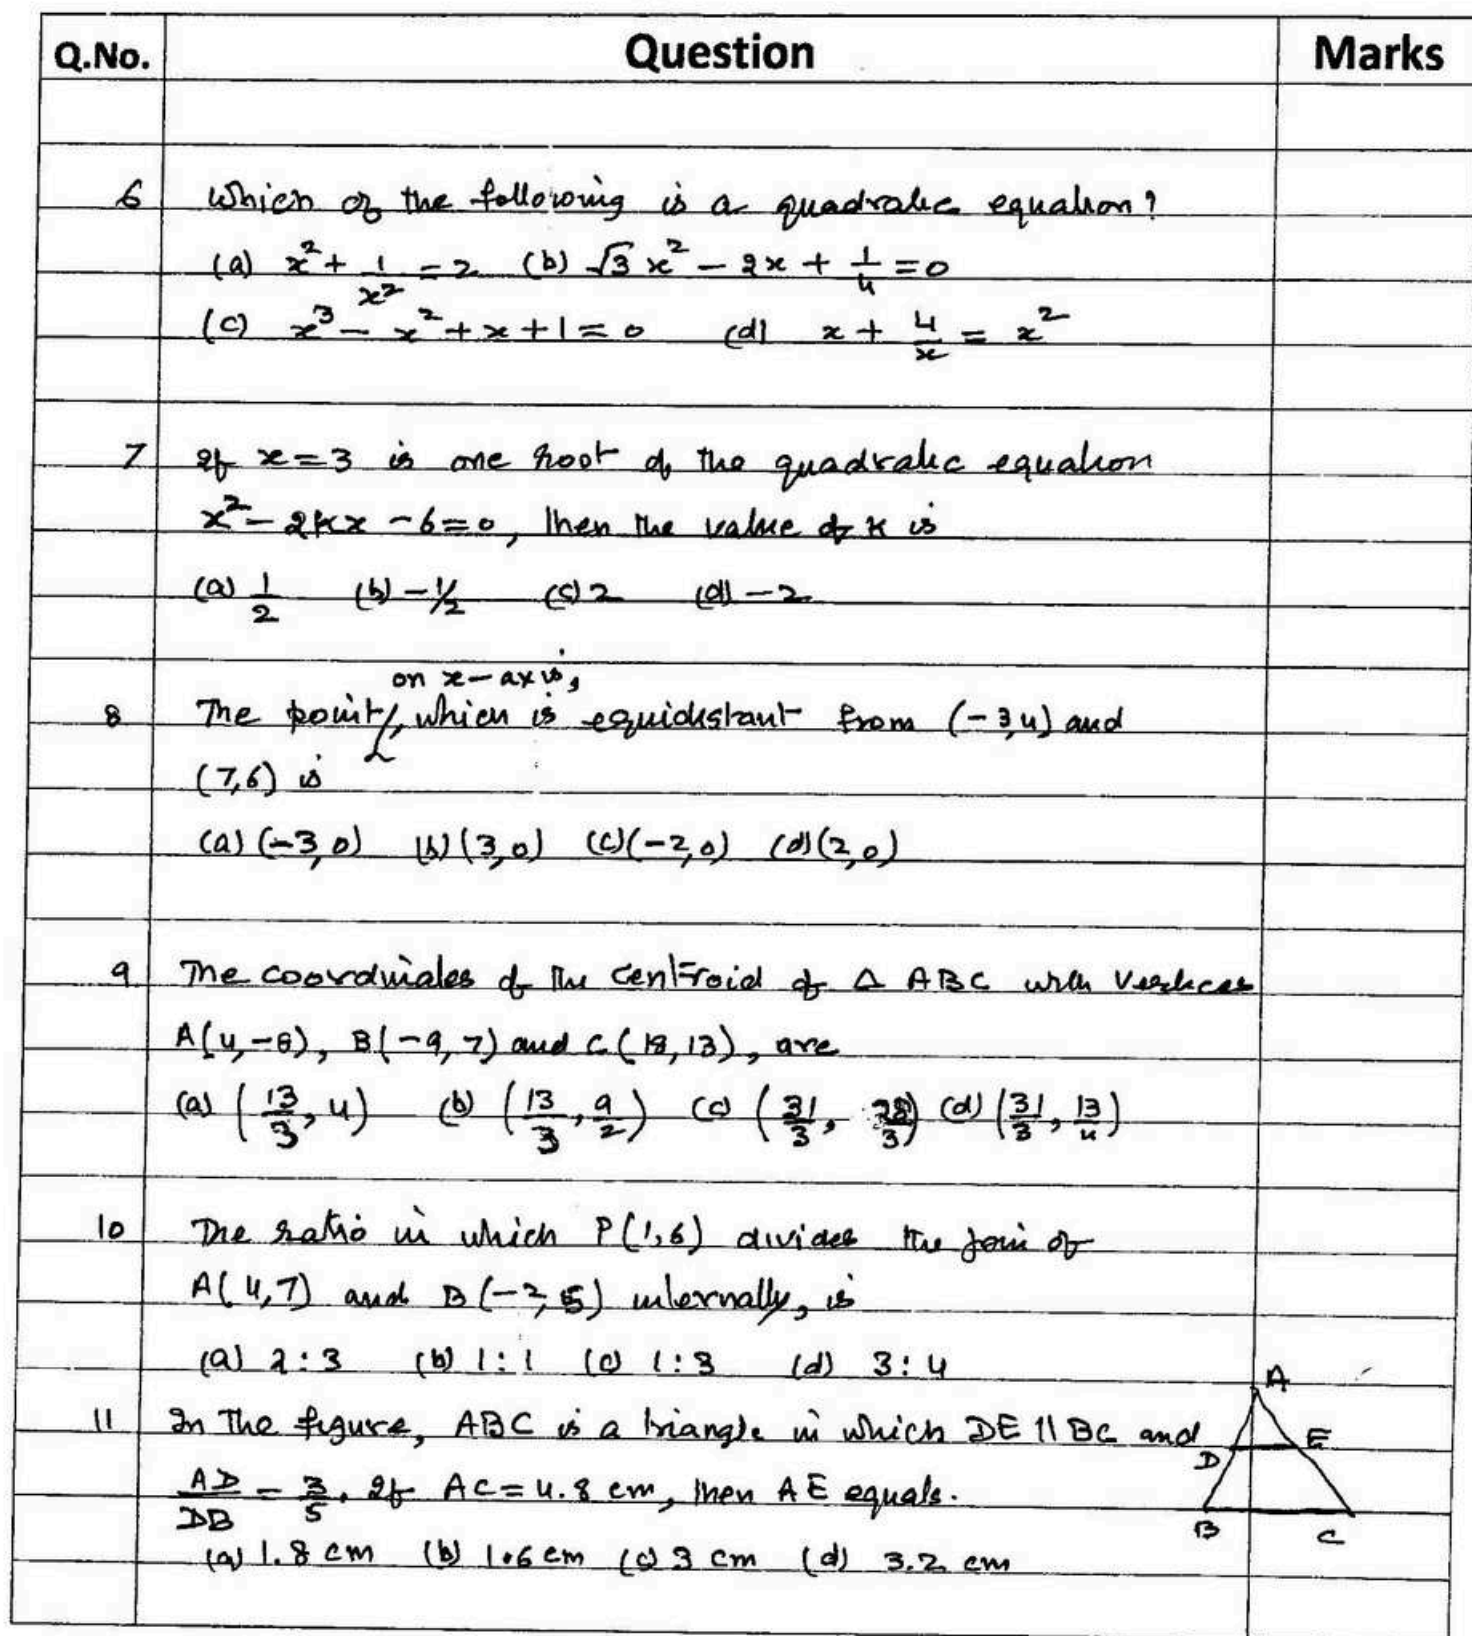 Q.No. Question Marks
6 Which of the following is a quadratic equation?
(a) x² + 1/x² = 2 (b) √3 x² - 2x + 1/4 = 0
(c) x³ - x² + x + 1 = 0 (d) x + 4/x = x²
7 If x = 3 is one root of the quadratic equation
x² - 2kx - 6 = 0, then the value of k is
(a) 1/2 (b) -1/2 (c) 2 (d) -2
on x-axis,
8 The point, which is equidistant from (-3,4) and
(7,6) is
(a) (-3,0) (b) (3,0) (c) (-2,0) (d) (2,0)
9 The coordinates of the centroid of Δ ABC with vertices
A(4,-8), B(-9,7) and C(18,13), are
(a) (13/3, 4) (b) (13/3, 9/2) (c) (31/3, 28/3) (d) (31/3, 13/4)
10 The ratio in which P(1,6) divides the join of
A(4,7) and B(-2,5) internally, is
(a) 2:3 (b) 1:1 (c) 1:3 (d) 3:4
11 In the figure, ABC is a triangle in which DE || BC and
AD/DB = 3/5. If AC = 4.8 cm, then AE equals.
(a) 1.8 cm (b) 1.6 cm (c) 3 cm (d) 3.2 cm
A
D E
B C